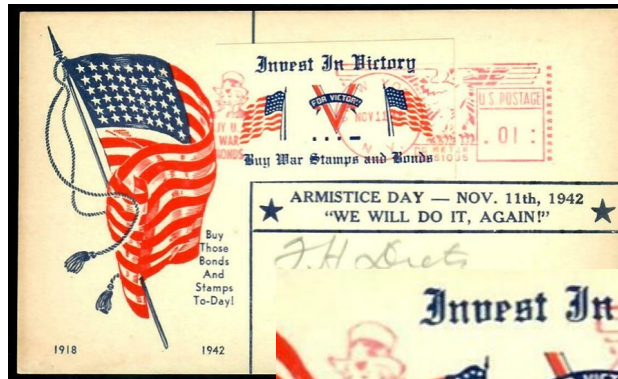 Invest In Victory
FOR VICTORY
NOV 11
N. Y.
U.S. POSTAGE
.01:
WAR
BONDS
Buy War Stamps and Bonds
ARMISTICE DAY — NOV. 11th, 1942
"WE WILL DO IT, AGAIN!"
Buy
Those
Bonds
And
Stamps
To-Day!
1918
1942
Invest In